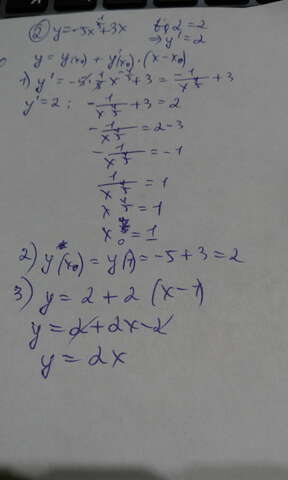 ② y = -5x^{1/5} + 3x    tgα = 2
⇒ y' = 2
y = y(x₀) + y'(x₀)·(x - x₀)
1) y' = -5·\frac{1}{5}x^{-\frac{4}{5}} + 3 = \frac{-1}{x^{\frac{4}{5}}} + 3
y' = 2 : -\frac{1}{x^{\frac{4}{5}}} + 3 = 2
-\frac{1}{x^{\frac{4}{5}}} = 2 - 3
-\frac{1}{x^{\frac{4}{5}}} = -1
\frac{1}{x^{\frac{4}{5}}} = 1
x^{\frac{4}{5}} = 1
x₀ = 1
2) y(x₀) = y(1) = -5 + 3 = 2
3) y = 2 + 2 (x - 1)
y = 2 + 2x - 2
y = 2x